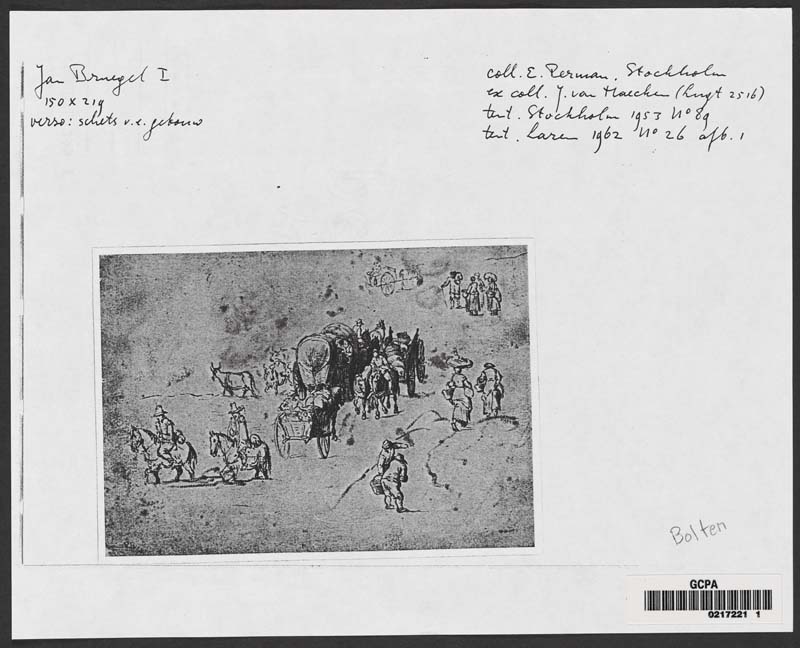 Jan Bruegel I
150 x 219
verso: schets v.e. gebouw
coll. E. Perman, Stockholm
ex coll. J. van Haecken (Lugt 2516)
tent. Stockholm 1953 No 89
tent. Laren 1962 No 26 afb. 1
Bolten
GCPA
0217221 1